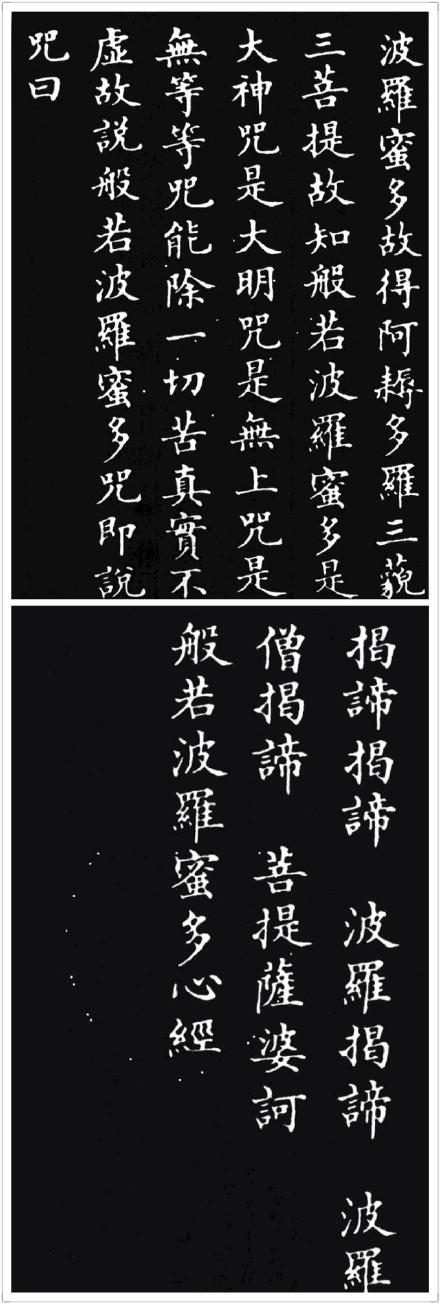 波羅蜜多故得阿耨多羅三藐
三菩提故知般若波羅蜜多是
大神咒是大明咒是無上咒是
無等等咒能除一切苦真實不
虛故說般若波羅蜜多咒即說
咒曰
揭諦揭諦 波羅揭諦 波羅
僧揭諦 菩提薩婆訶
般若波羅蜜多心經